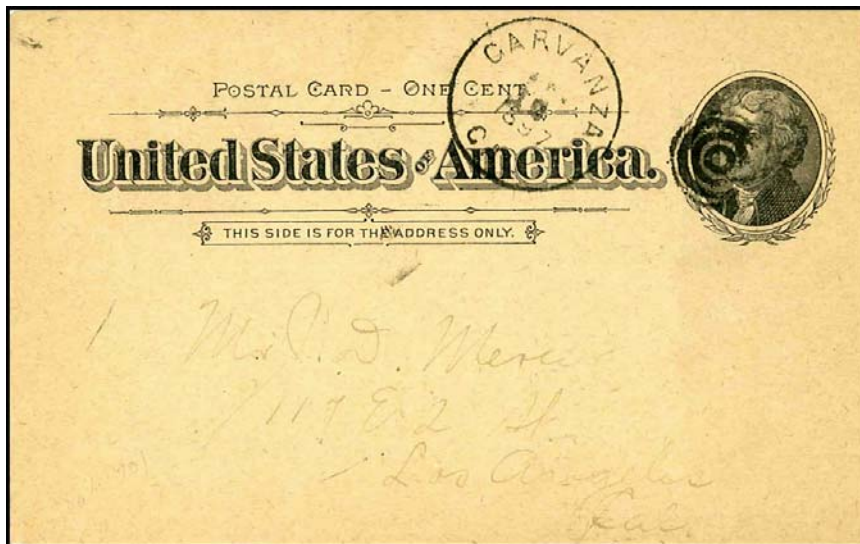 POSTAL CARD - ONE CENT.
United States OF America.
THIS SIDE IS FOR THE ADDRESS ONLY.
GARVANZA
1897
Mr P. D.
117 E 2 St
Los Angeles
Cal.